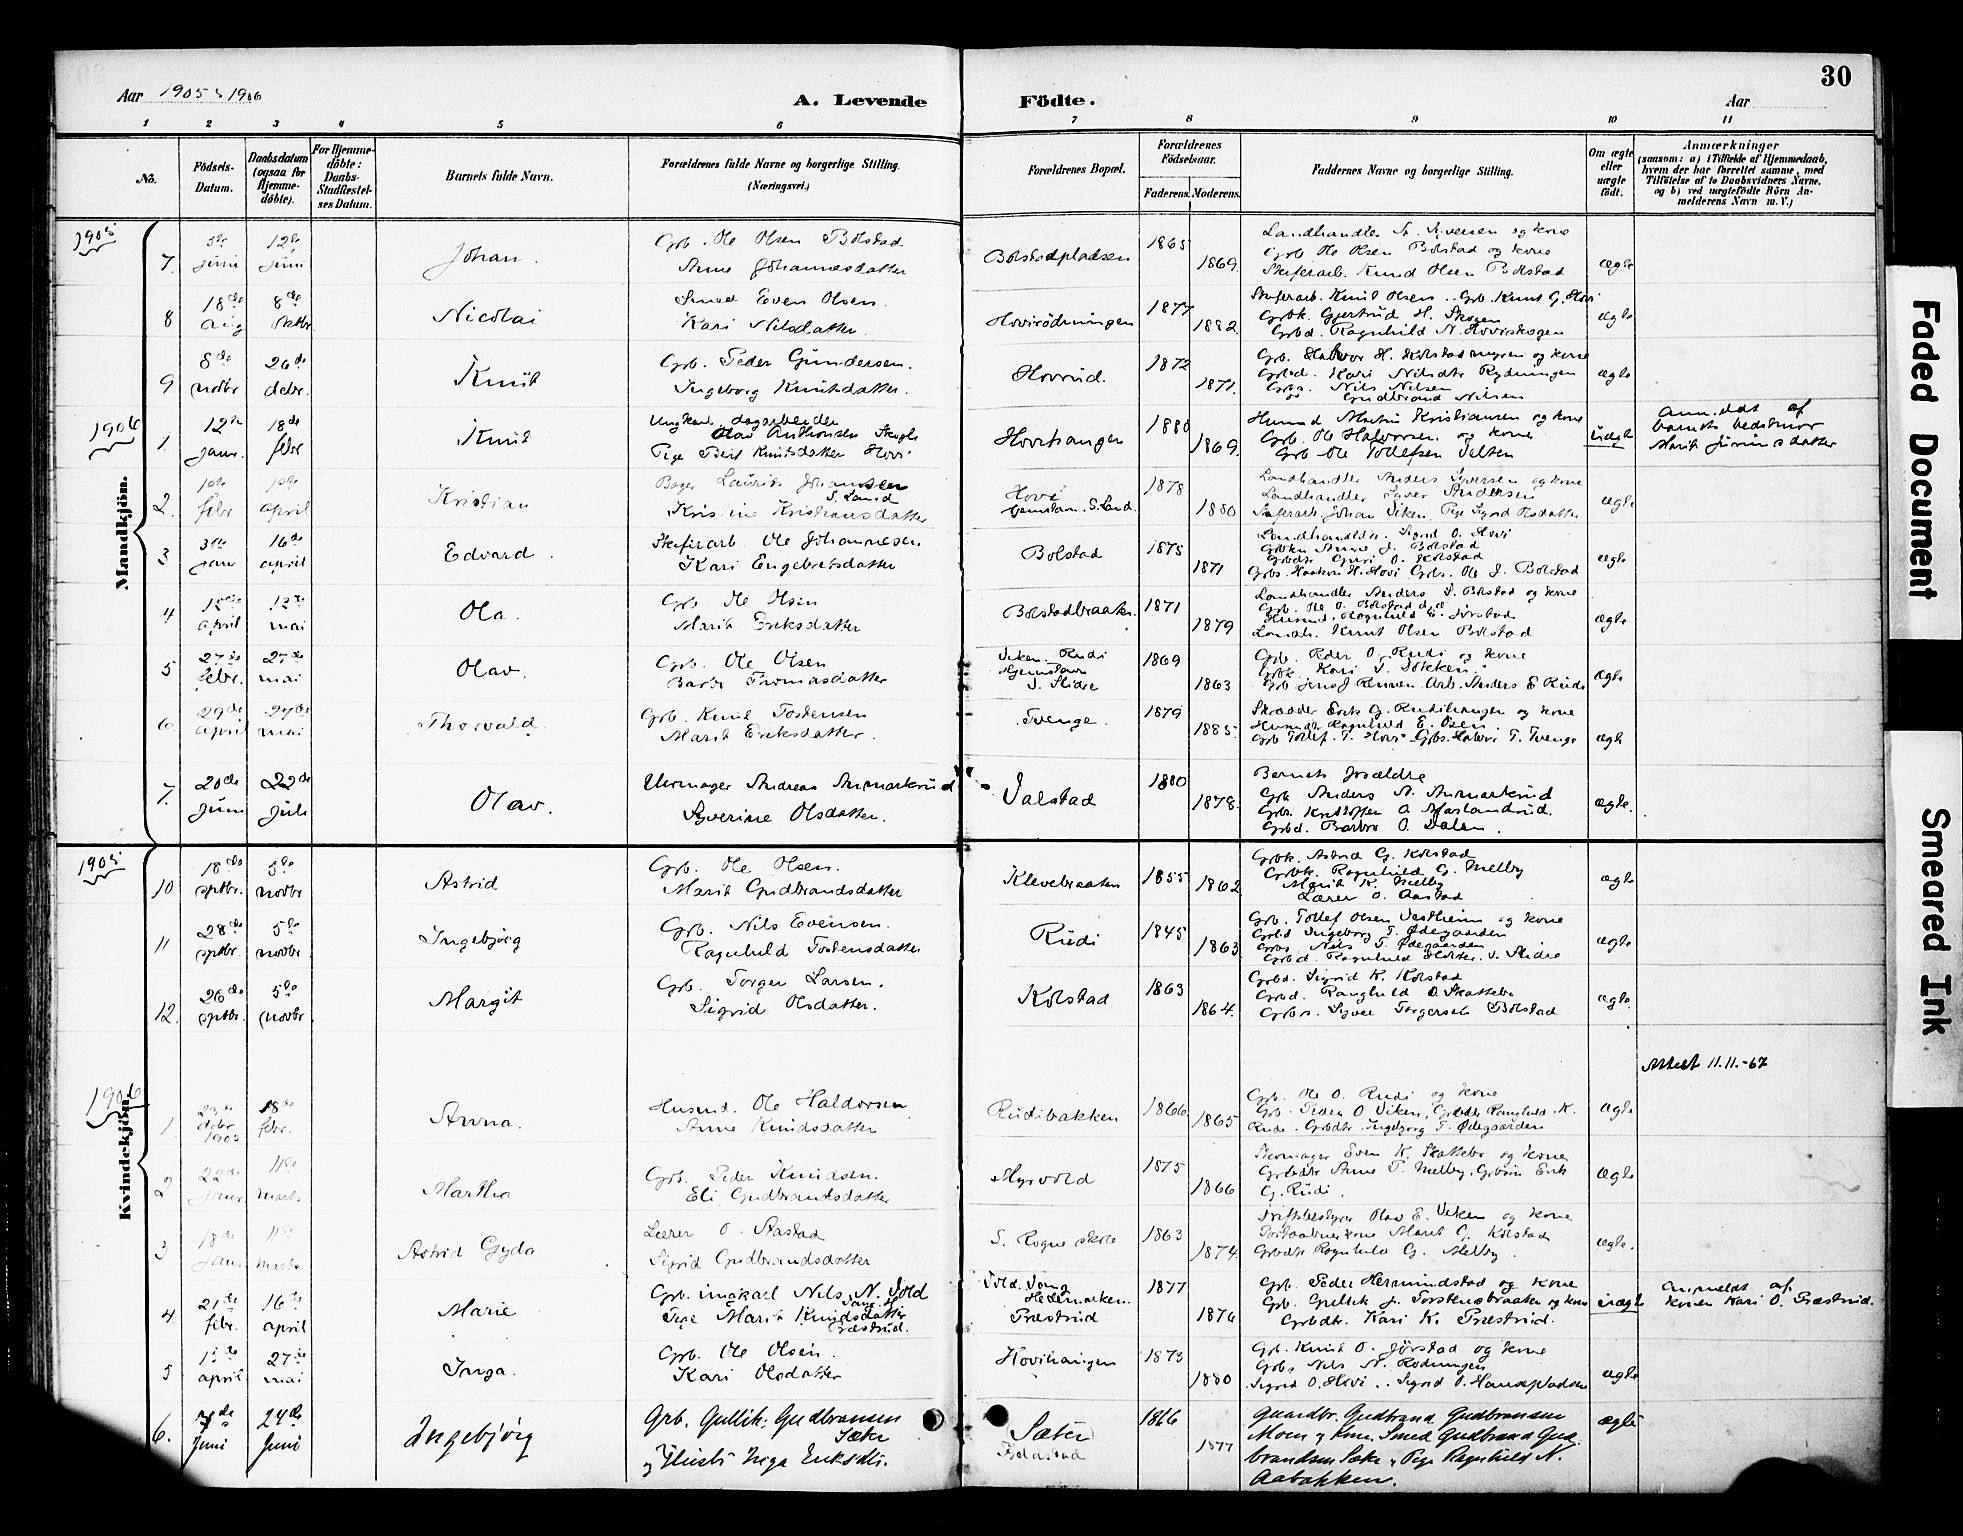 30
Aar 1905 & 1906
A. Levende
Födte.
Aar
1 2 3 4 5 6 7 8 9 10 11
No.
Födsels-Datum.
Daabsdatum (ogsaa for Hjemme-döbte).
For Hjemme-döbte: Daabs-Stadfæstel-ses Datum.
Barnets fulde Navn.
Forældrenes fulde Navne og borgerlige Stilling. (Næringsvei.)
Forældrenes Bopæl.
Forældrenes Födselsaar.
Faderens. Moderens.
Faddernes Navne og borgerlige Stilling.
Om ægte eller uægte födt.
Anmærkninger
(saasom: a) i Tilfælde af Hjemmedaab, hvem der har forrettet samme, med Tilföielse af to Daabsvidners Navne. og b) ved uægtefödte Börn An-melderens Navn m. V.)
Mandkjön.
1905
7. 5te juni 12te juni Johan. Grb. Ole Olsen Bolstad Anne Johannesdatter Bolstadpladsen 1865 1869. Landhandler A. Syversen og kone Grb Ole Olsen Bolstad og kone Skiferarb. Knud Olsen Bolstad ægte
8 18de aug 8de oktbr Nicolai Smed Even Olsen. Kari Nilsdatter. Hovirödningen 1877 1882. Skiferarb. Knut Olsen. Grb. Knut G. Hovi Grbk. Gjertrud H. Skogen Grbd. Ragnhild N. Hoviskogen ægte
9 8de novbr 26de debr. Knut Grb. Peder Gundersen. Ingeborg Knutsdatter. Hovrud. 1872 1871. Grb. Halvor H. Kolstadmyren og kone Grbd. Kari Nilsdtr Rydningen Grbs. Nils Nilsen Gudbrand Nilsen ægte
1906
1. 12te janr. 18de febr Knut Ungkarl dagarbeider Olav Anthonsen Skogli Pige Berit Knutsdatter Hovi Hovihaugen 1880 1869. Husmd Martin Kristiansen og kone Grb. Ole Halvorsen og kone Grb Ole Tollefsen Velten uægte Anmeldt af barnets bedstmor Marit
2. febr april Kristian Bager Laurits Johansen S. Land Kristine Kristiansdatter Hovi hjemstavn. S. Land. 1878 1880 Landhandler Anders Syversen og kone Landhandler Syver Andersen Skiferarb. Johan Viken, Pige Sigrid Olsdatter ægte
3 janr 16de april Edvard. Skiferarb. Ole Johannesen. Kari Engebretsdatter Bolstad 1875 1871 Sigrid O. Hovi Anne J. Bolstad Guri O. Kolstad Grbs. Haakon H. Hovi Grbs. Ole J. Bolstad ægte
4 april mai Ola. Grb. Ole Olsen Marit Eriksdatter Bolstadbraaten. 1871 1879 Landhandler Anders S. Bolstad og kone Grb. Ole O. Bolstad Ragnhild Landh. Knut Olsen Bolstad ægte
5 27de febr. 27de mai Olav. Grb. Ole Olsen Barbr Thomasdatter Viken. Rudi Hjemstavn S. Slidre 1869 1863 Grb. Peder O. Rudi og kone Grbk. Kari T. Grb Jens J Rennen Arb. Anders E Rudi ægte
6 29de april 27de mai Thorvald Grb. Knut Tostensen Marit Eriksdatter. Tvenge. 1879 1885. Skrædder Erik G. Rudihaugen og kone Ragnhild E. Olsen Grb Tollef T. Hovi Grbs. Halvor T. Tvenge ægte
7. 20de juni 22de juli Olav. Urmager Andreas Anmarkrud Syverine Olsdatter. Valstad 1880 1878. Barnets forældre Grb Anders A. Anmarkrud Grbs. Kristoffer O. Grbd. Barbro O. Dalen. ægte.
Kvindekjön.
1905
10 18de sptbr. 5te novbr Astrid Grb. Ole Olsen. Marit Gudbrandsdatter Klevebraaten 1855 1862 Grbk. Astrid G. Kolstad Grbk. Ragnhild G. Melby Marit K. Melby Lærer O. Aastad ægte
11 28de sptbr. 5te novbr Ingebjörg Grb. Nils Evensen. Ragnhild Tostensdatter Rudi 1845 1863 Grb. Tollef Olsen Vestheim og kone Grbd Ingeborg T. Ødegaarden Grbs. Nils T. Ødegaarden Grbd. Ragnhild S. Slidre ægte
12. 26de sptbr. 5te novbr Margit Grb. Torger Larsen. Sigrid Olsdatter. Kolstad 1863 1864. Grbd. Sigrid K. Kolstad Grbd. Ranghild O. Skattebo Grbs. Syver Torgersen Bolstad ægte.
Attest 11.11.-67
1906
1. 23de debr 1905 18de febr. Anna. Husmd. Ole Haldorsen Anne Knudsdatter Rudibakken 1866 1865 Grb. Ole O. Rudi og kone Grb. Peder O Viken, Grbdtr Ranghild K. Rudi. Grbdtr Ingeborg T. Ødegaarden ægte
2 22de janr 11te marts Martha Grb. Peder Knudsen. Eli Gudbrandsdatter Myrvold 1875 1866 Skomager Even K. Skattebo og kone Grbdtr Anne T. Melby, Grbsön Erik G. Rudi. ægte
3 18de janr 11te marts Astrid Gyda Lærer O. Aastad Sigrid Gudbrandsdatter S. Rogne skole 1863 1874. Driftsbestyrer Olav E. Viken og kone Marit G. Kolstad Grbdtr Ragnhild G. Melby. ægte.
4. 21de febr. 16de april Marie Grb. Nils N. Vold Vang H. Pige Marit Knudsdatter Præstrud. Vold. Vang Hedemarken. Præstrud 1877 1876 Grb. Peder Hermundstad og kone Grb. Gullik J. Torstensbraaten og kone Grbdtr. Kari K. Præstrud. uægte Anmeldt af konen Kari O. Præstrud.
5 april 27de mai Inga. Grb. Ole Olsen. Kari Olsdatter Hovihaugen 1873 1880 Grb. Knut O. Jörstad og kone Grbs Nils N. Rödningen Sigrid O. Hovi. Sigrid O. ægte
6. juni 24de juni Ingebjörg Grb. Gullik Gudbransen Sæter og Inga Eriksdtr. Sæter 1866 1877 Gaardbr. Gudbrand Gudbransen Moen og Kone, Smed Gudbrand Gudbrandsen Sæter, Pige Ragnhild N. Aabakken. ægte
Faded Document
Smeared Ink